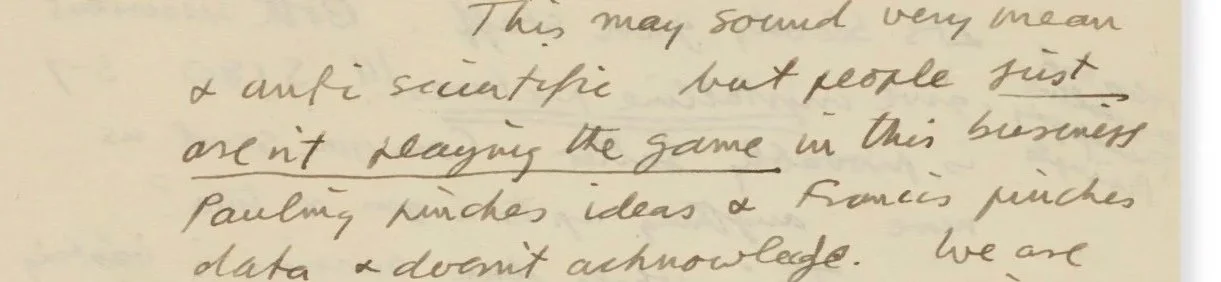 This may sound very mean
& anti scientific but people just
aren't playing the game in this business
Pauling pinches ideas & Francis pinches
data & doesn't acknowledge. We are